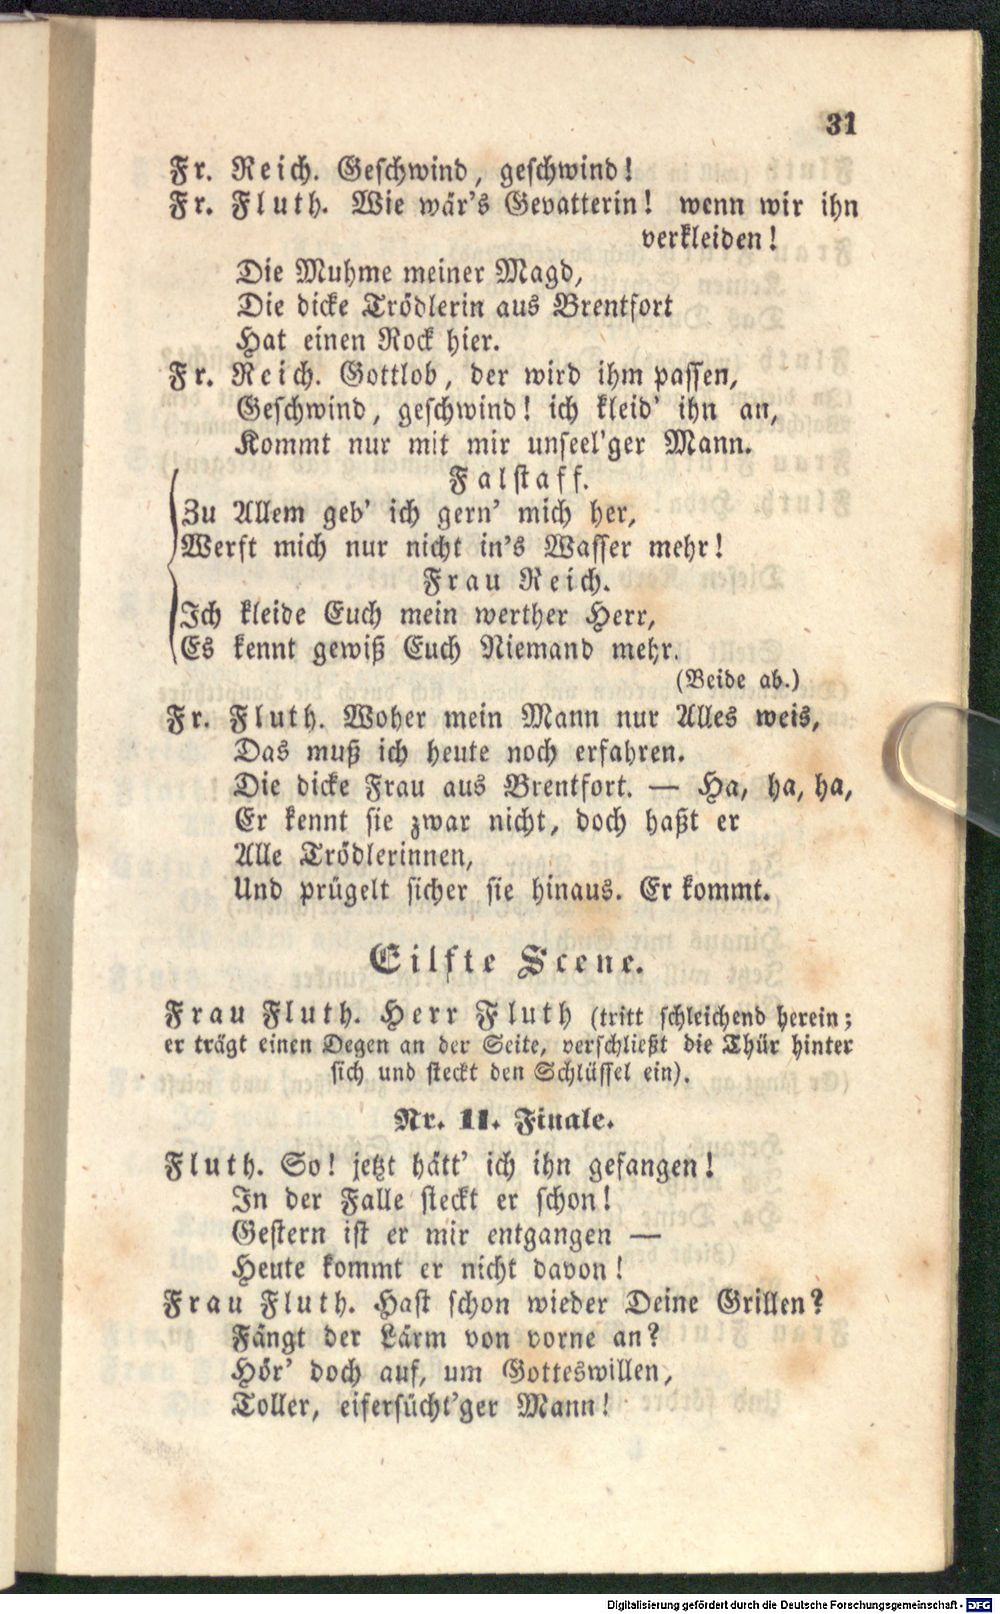 31
Fr. Reich. Geschwind, geschwind!
Fr. Fluth. Wie wär's Gevatterin! wenn wir ihn
verkleiden!
Die Muhme meiner Magd,
Die dicke Trödlerin aus Brentfort
Hat einen Rock hier.
Fr. Reich. Gottlob, der wird ihm passen,
Geschwind, geschwind! ich kleid' ihn an,
Kommt nur mit mir unseel'ger Mann.
Falstaff.
Zu Allem geb' ich gern' mich her,
Werft mich nur nicht in's Wasser mehr!
Frau Reich.
Ich kleide Euch mein werther Herr,
Es kennt gewiß Euch Niemand mehr.
(Beide ab.)
Fr. Fluth. Woher mein Mann nur Alles weis,
Das muß ich heute noch erfahren.
Die dicke Frau aus Brentfort. — Ha, ha, ha,
Er kennt sie zwar nicht, doch haßt er
Alle Trödlerinnen,
Und prügelt sicher sie hinaus. Er kommt.
Eilfte Scene.
Frau Fluth. Herr Fluth (tritt schleichend herein;
er trägt einen Degen an der Seite, verschließt die Thür hinter
sich und steckt den Schlüssel ein).
Nr. 11. Finale.
Fluth. So! jetzt hätt' ich ihn gefangen!
In der Falle steckt er schon!
Gestern ist er mir entgangen —
Heute kommt er nicht davon!
Frau Fluth. Hast schon wieder Deine Grillen?
Fängt der Lärm von vorne an?
Hör' doch auf, um Gotteswillen,
Toller, eifersücht'ger Mann!
Digitalisierung gefördert durch die Deutsche Forschungsgemeinschaft - DFG